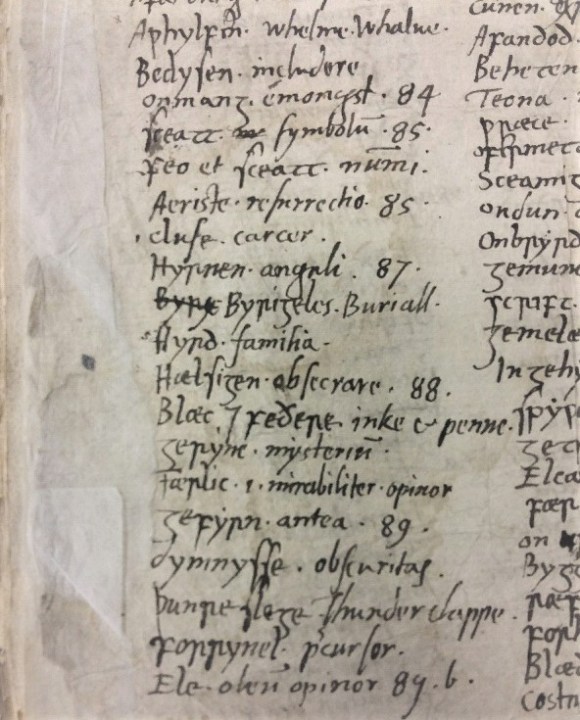 Aphylfð. whelme. Whalue.
Bedysen. includere
onmang. emongst. 84
sceatt symbolū. 85.
feo et sceatt. nūmi.
Aeriste. resurrectio. 85.
cluse. carcer.
angeli. 87.
Byrigeles. Buriall.
Hyrd. familia.
Hælsigen. obsecrare. 88.
Blæc ⁊ feðere. inke & penne.
geryne. mysteriū.
færlic. ı. mirabiliter. opinor
gefyrn. antea. 89.
dymnysse. obscuritas.
Þunre slege Thunder clappe.
forrynel. p̄cursor.
Ele. oleū opinor 89. b.
Cunen.
Afandod.
Beheten
Teona.
præce.
ondun.
Onbryrd
gemun
script.
gemelæ
In gehy
spyr
Elca
fær
on
Byge
fær
forr
Blæd
costn